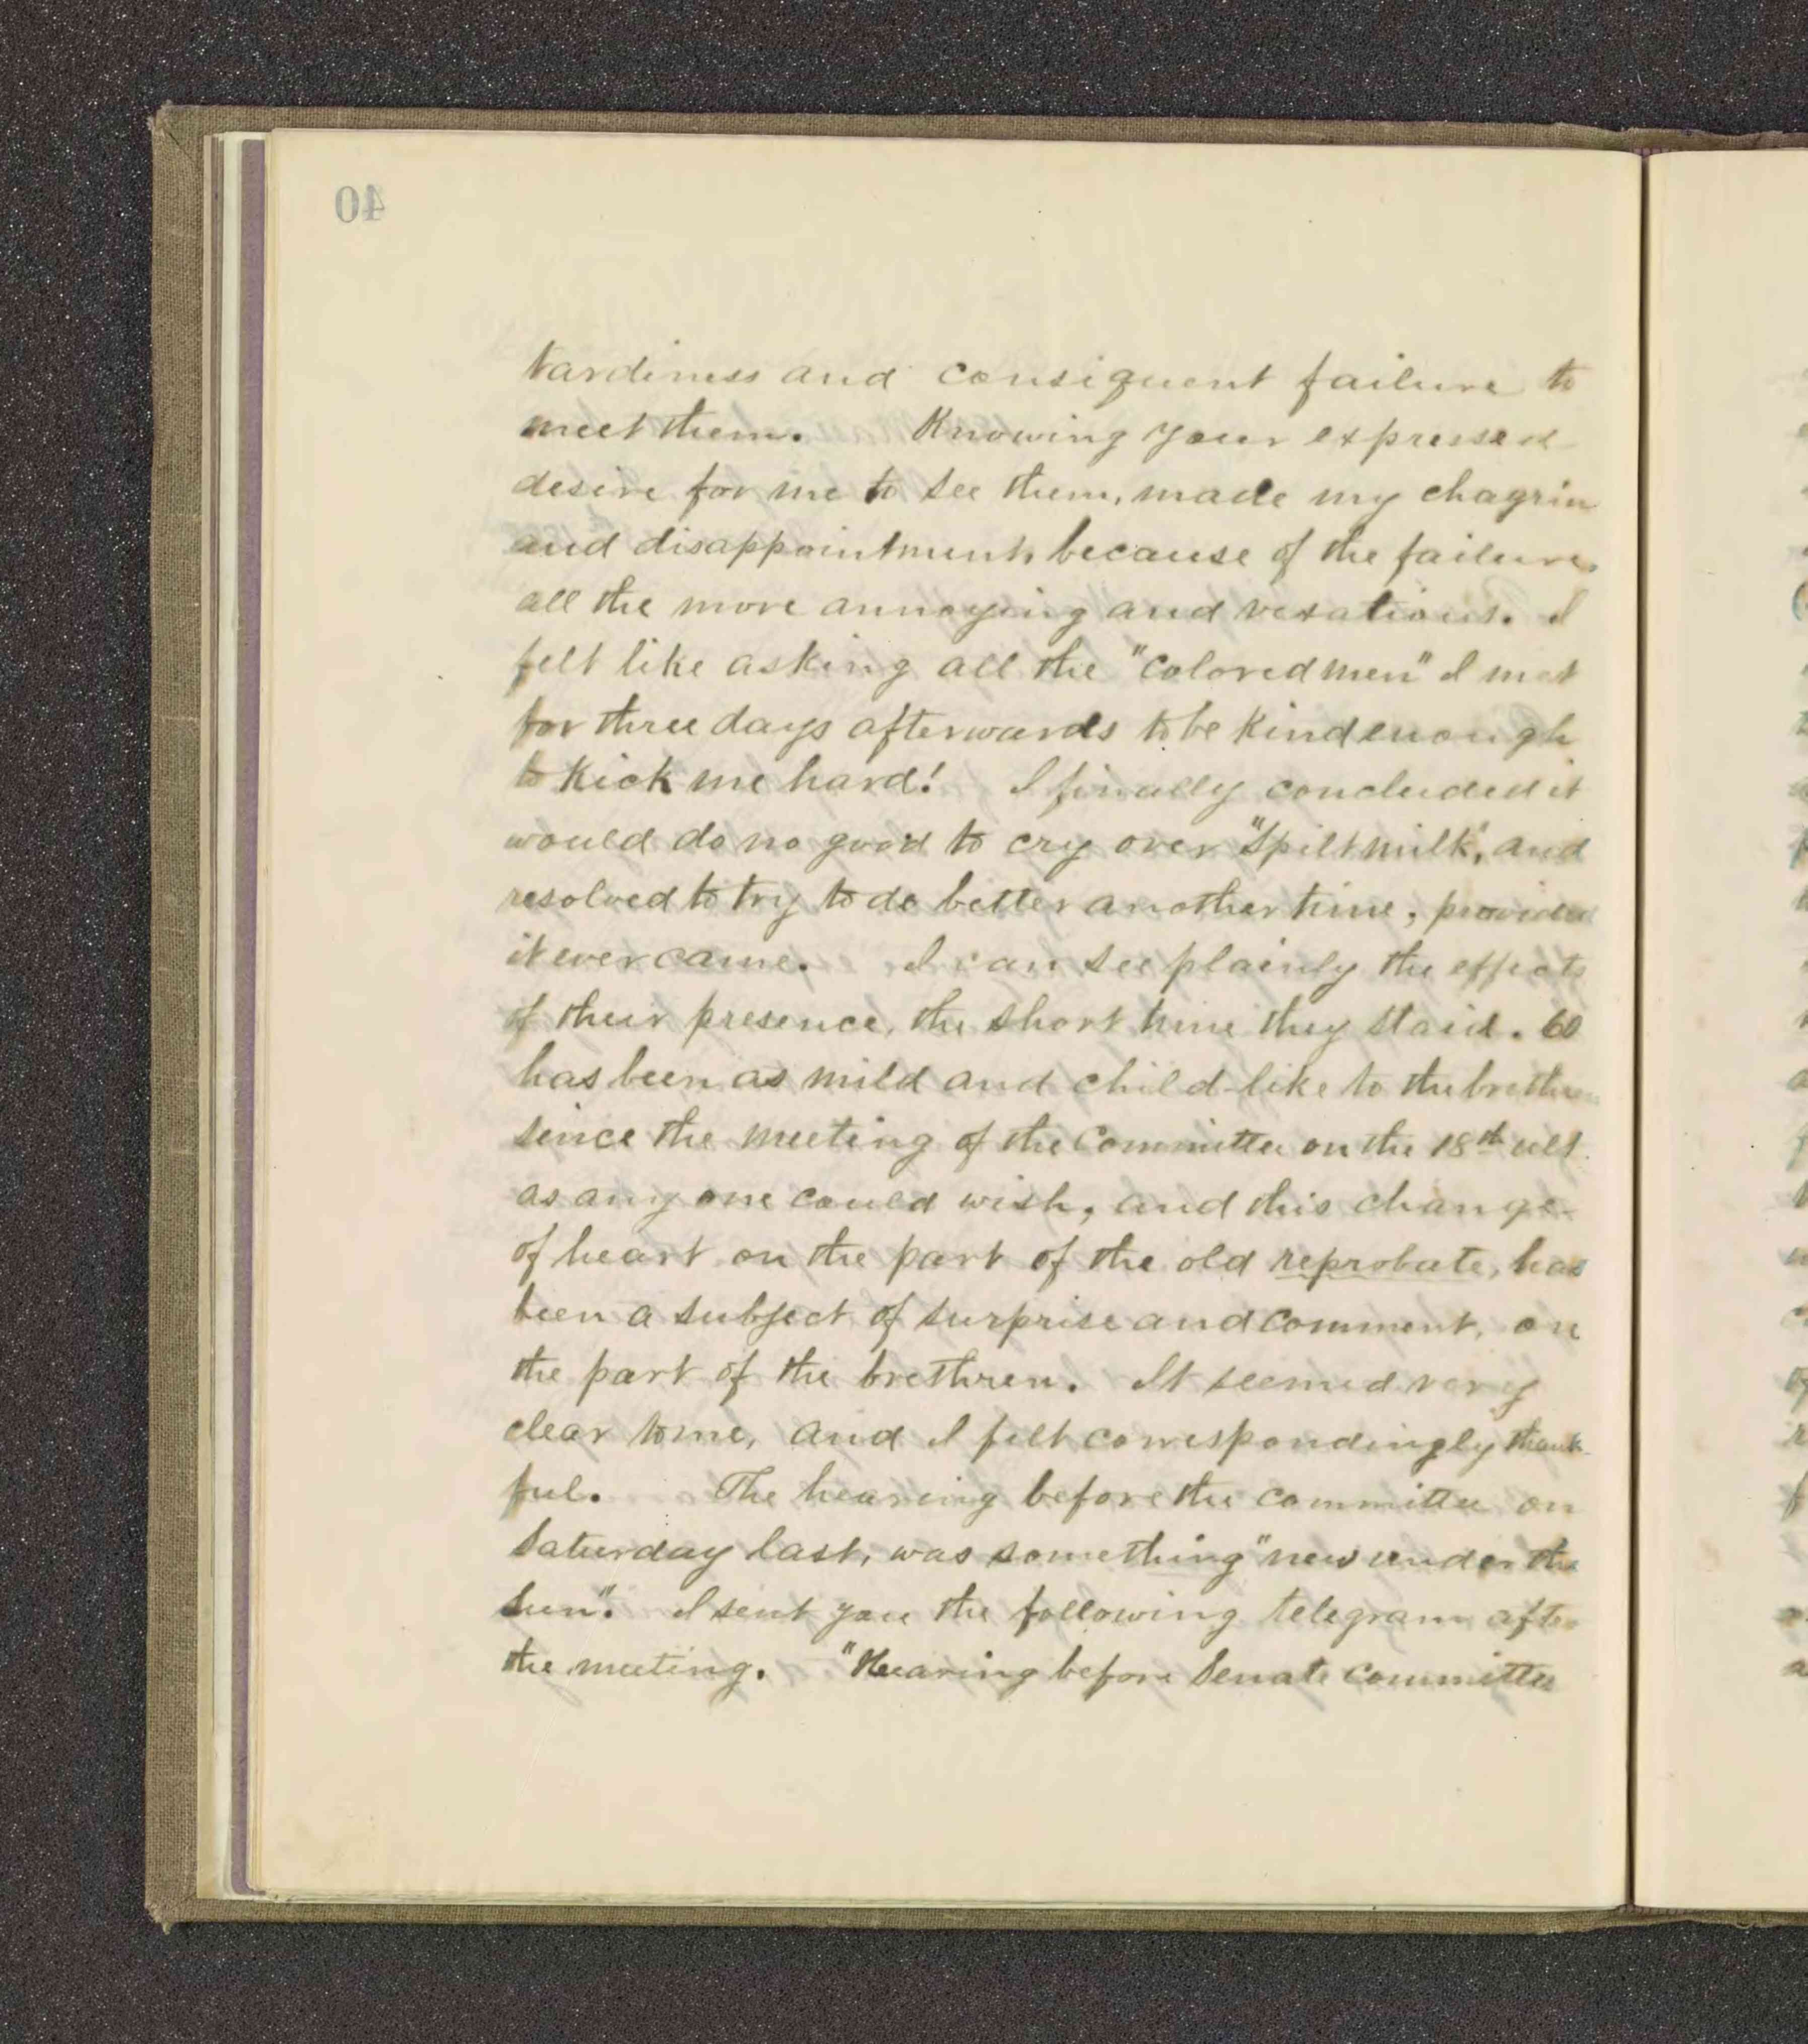 40
tardiness and consequent failure to
meet them. Knowing your expressed
desire for me to see them, made my chagrin
and disappointment, because of the failure,
all the more annoying and vexatious. I
felt like asking all the "colored men" I met
for three days afterwards to be kind enough
to kick me hard! I finally concluded it
would do no good to cry over "spilt milk", and
resolved to try to do better another time, provided
it ever came. I can see plainly the effects
of their presence, the short time they staid. 60
has been as mild and child-like to the brethren
since the meeting of the Committee on the 18th ult.
as any one could wish, and this change
of heart on the part of the old reprobate, has
been a subject of surprise and comment, on
the part of the brethren. It seemed very
clear to me, and I felt correspondingly thank-
ful. The hearing before the committee on
Saturday last, was something "new under the
sun". I sent you the following telegram after
the meeting. "Hearing before Senate Committee